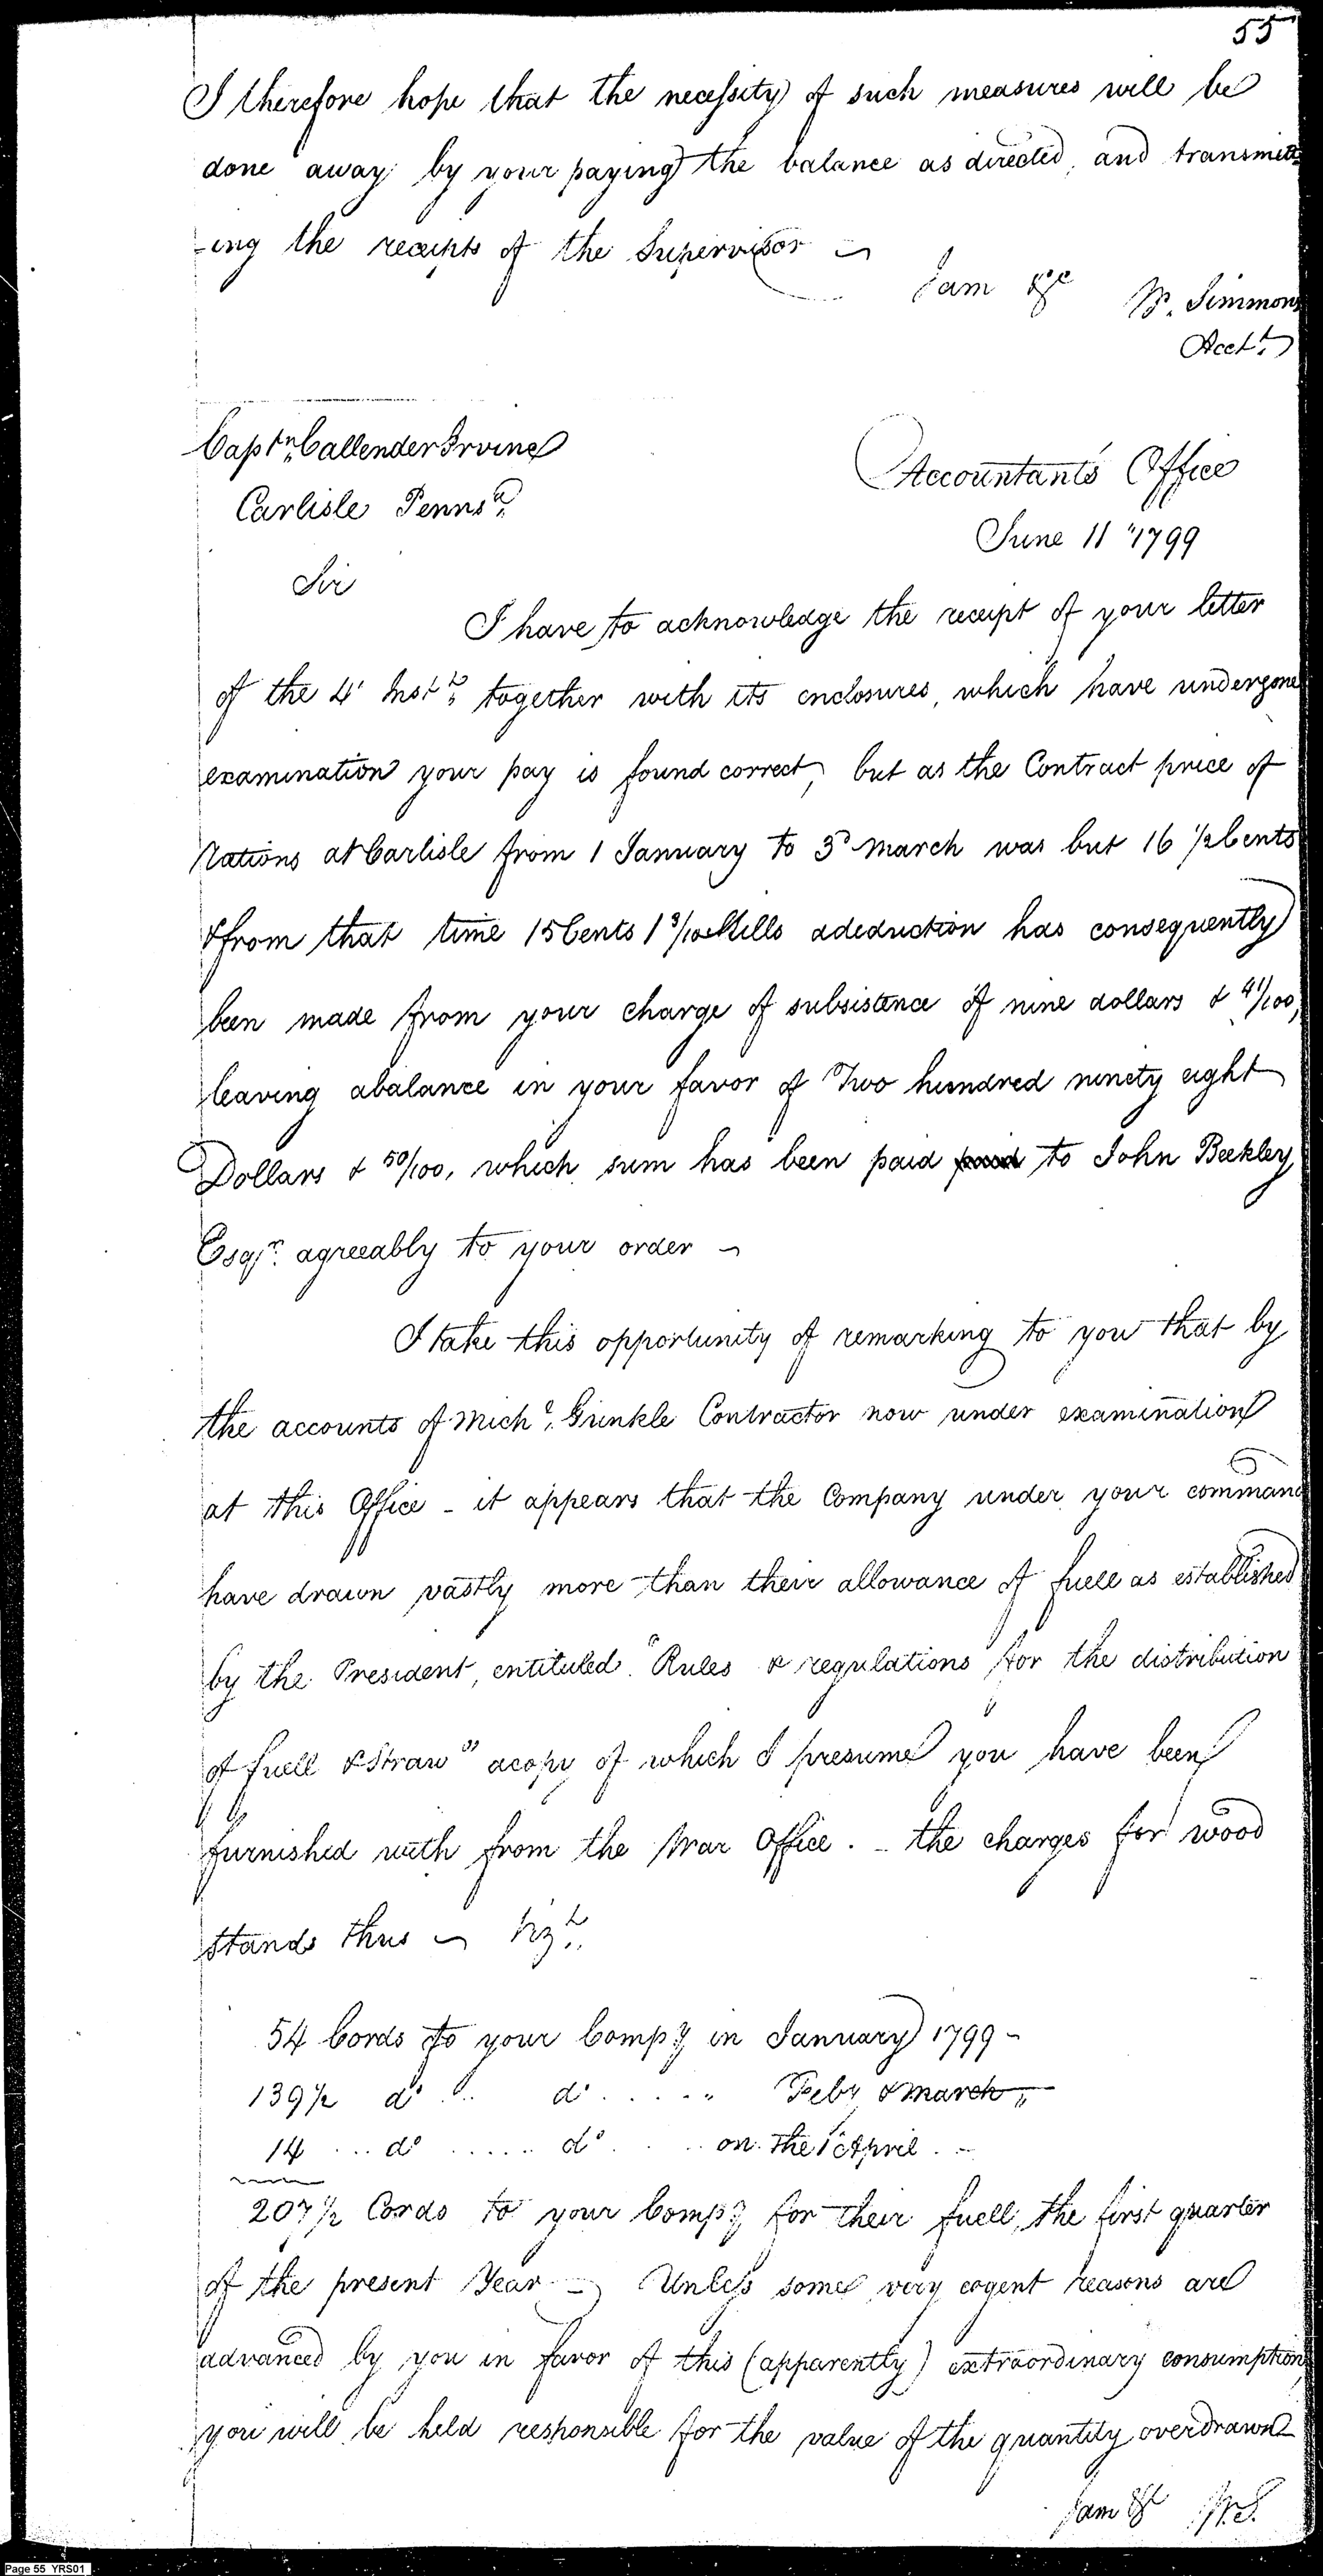 55
I therefore hope that the necessity of such measures will be
done away by your paying the balance as directed, and transmitt
-ing the receipts of the Supervisor
I am &c W. Simmons
Acct.t
Capt.n Callender Irvine
Carlisle Penns.a
Accountant's Office
June 11 "1799
Sir
I have to acknowledge the receipt of your letter
of the 4' Inst. together with its enclosures, which have undergone
examination your pay is found correct, but as the Contract price of
Rations at Carlisle from 1 January to 3d March was but 16 1/2 Cents
& from that time 15 Cents 1 3/10 Mills a deduction has consequently
been made from your charge of subsistence of nine dollars & 41/100,
leaving a balance in your favor of Two hundred ninety eight
Dollars & 50/100, which sum has been paid paid to John Beckley
Esqr. agreeably to your order
I take this opportunity of remarking to you that by
the accounts of Mich.l Gunkle Contractor now under examination
at this Office - it appears that the Company under your command
have drawn vastly more than their allowance of fuell as established
by the President, entituled "Rules & regulations for the distribution
of fuell & Straw" a copy of which I presume you have been
furnished with from the War Office. - the charges for wood
stands thus Viz.t
54 Cords to your Comp.y in January 1799 -
139 1/2 do .. do ..... " Feby & March "
14 ... do ..... do ... on the 1st April . -
207 1/2 Cords to your Comp.y for their fuell, the first quarter
of the present Year - Unless some very cogent reasons are
advanced by you in favor of this (apparently) extraordinary consumption,
you will be held responsible for the value of the quantity overdrawn
I am &c W.S.
Page 55 YRS01